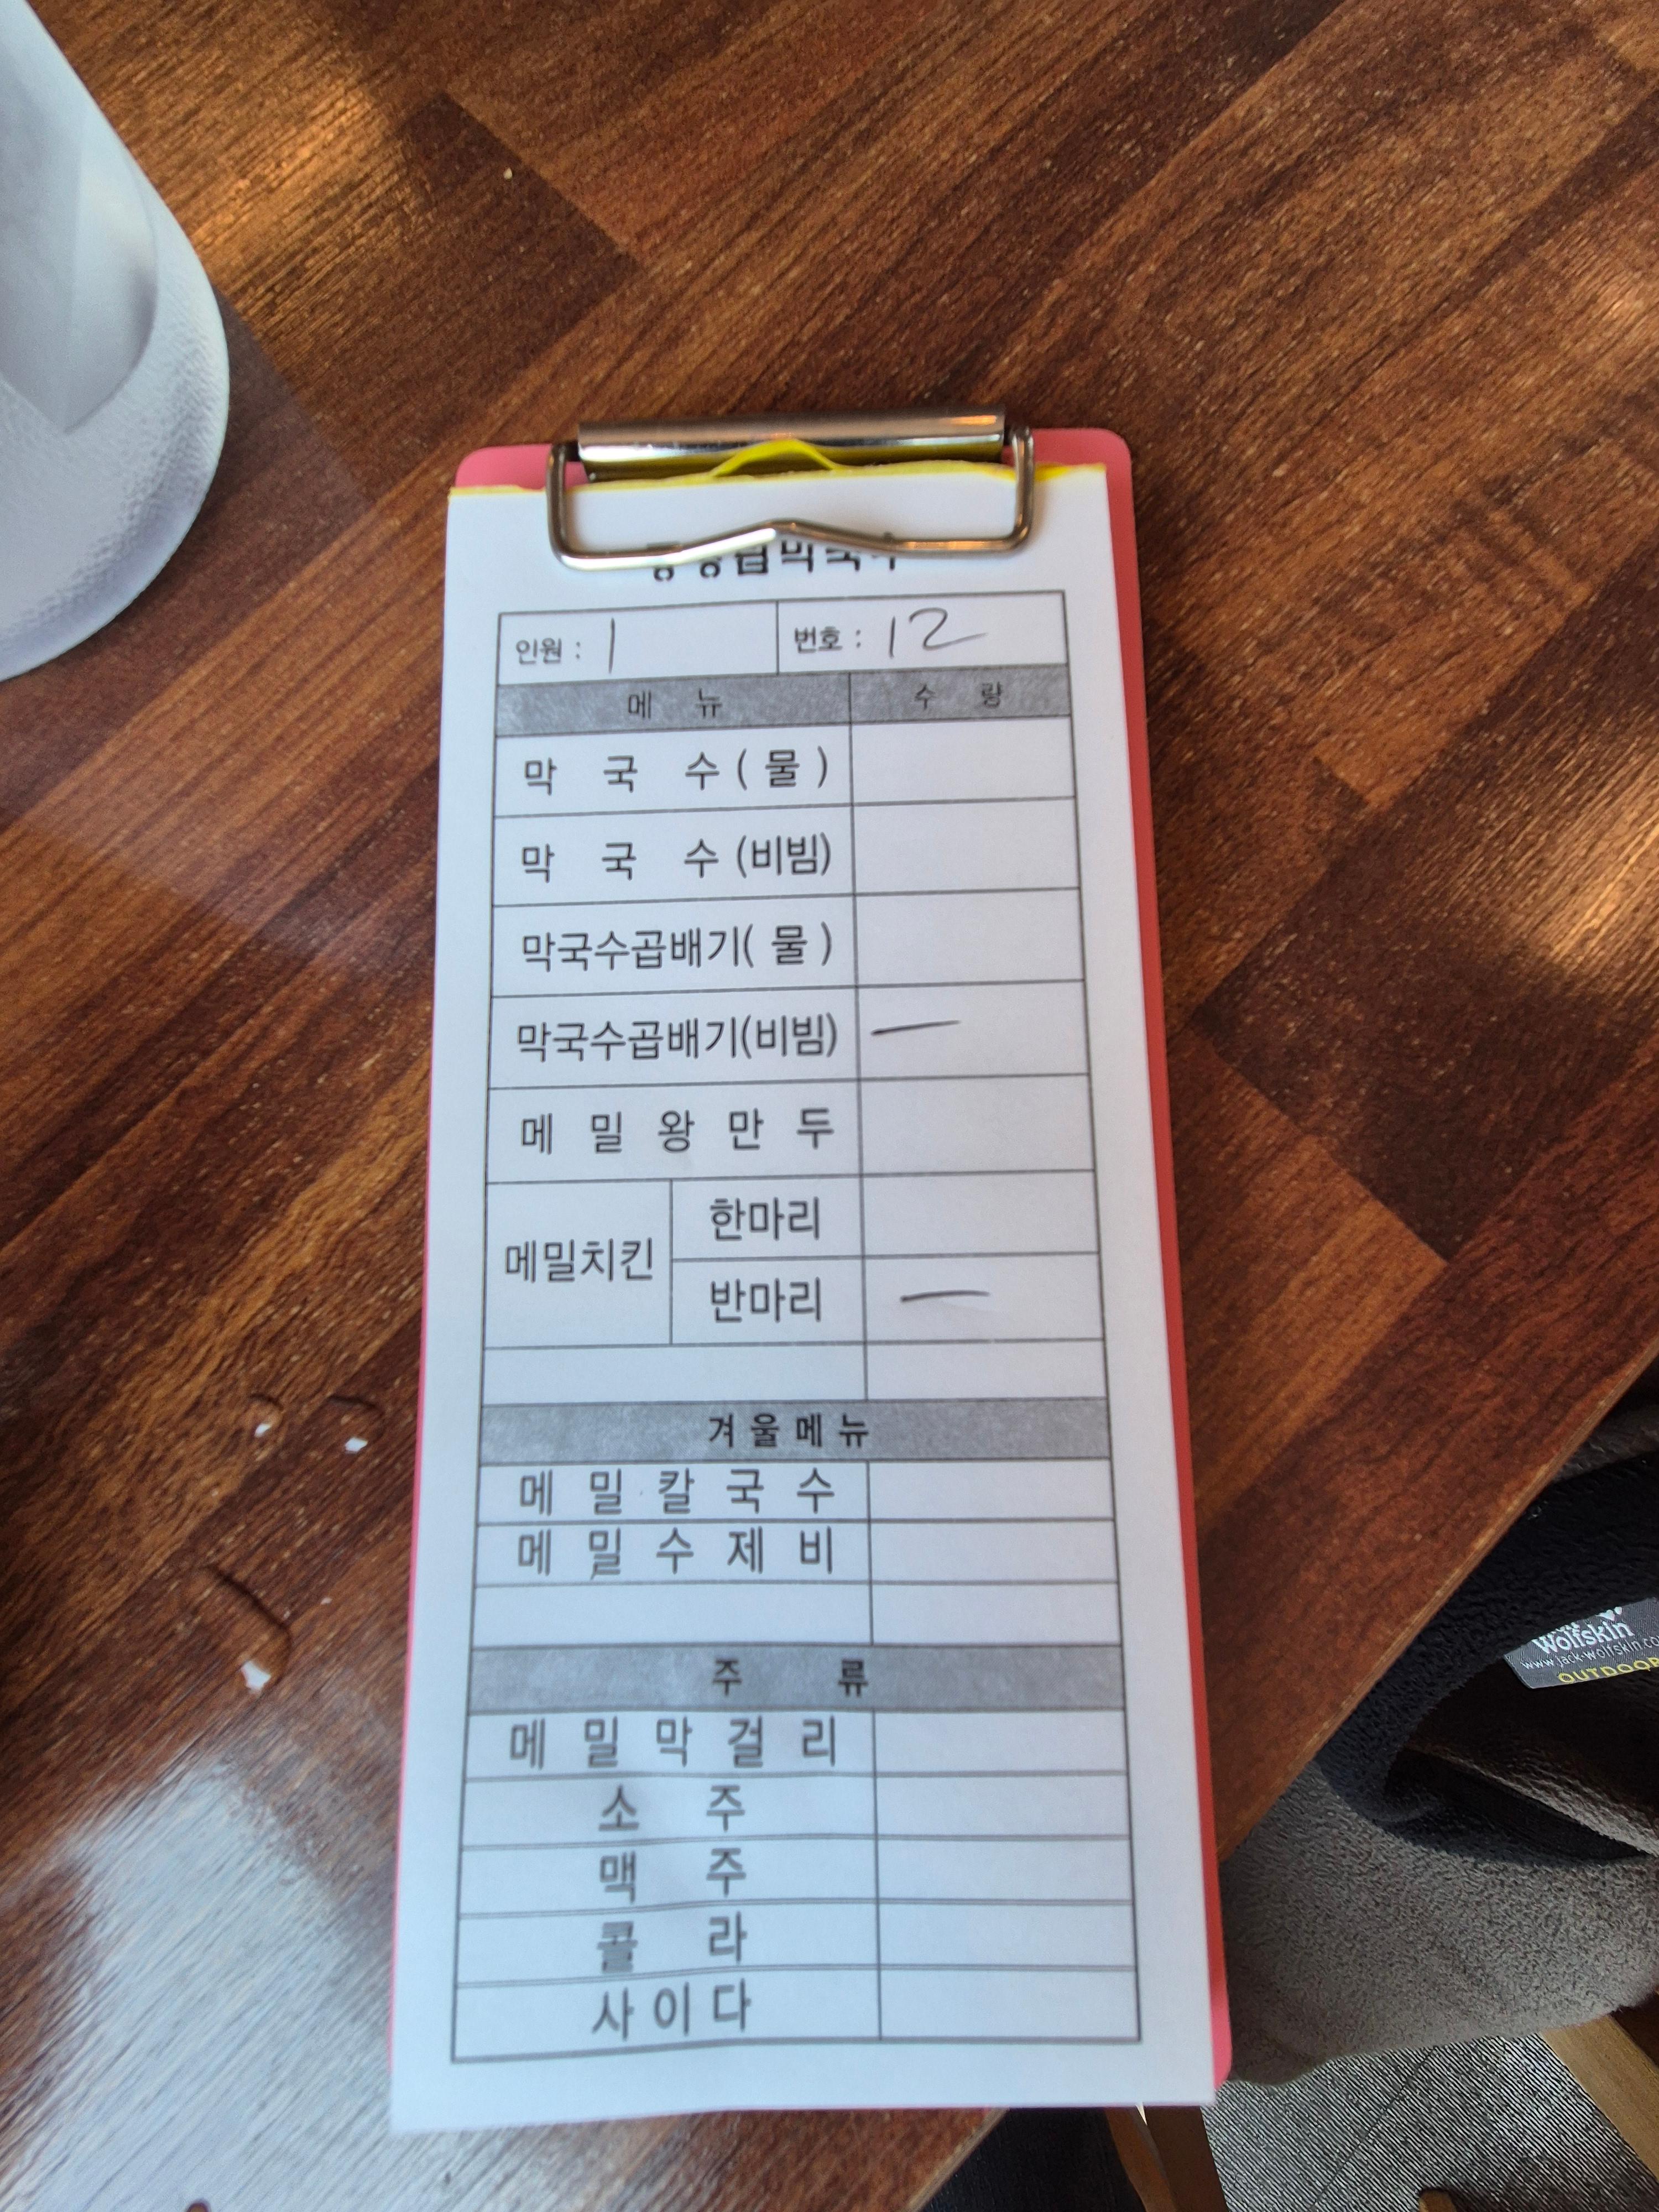 인원 : 1 번호 : 12
메 뉴 수 량
막 국 수 ( 물 )
막 국 수 (비빔)
막국수곱배기( 물 )
막국수곱배기(비빔) 一
메 밀 왕 만 두
메밀치킨 한마리
반마리 一
겨울메뉴
메 밀 칼 국 수
메 밀 수 제 비
주 류
메 밀 막 걸 리
소 주
맥 주
콜 라
사이다
Wolfskin
www.jack-wolfskin.co
OUTDOOR